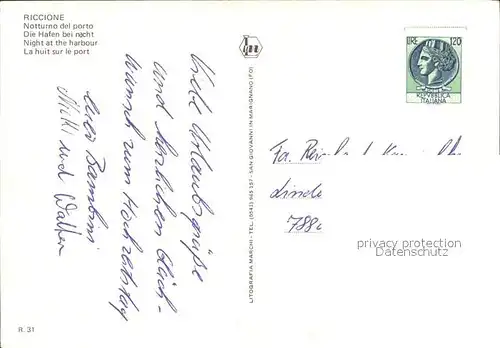 RICCIONE
Notturno del porto
Die Hafen bei nacht
Night at the harbour
La huit sur le port
Viele Urlaubsgrüße
und herzlichen Glück-
wunsch zum Hochzeitstag
eure Bambini
Michi und Walter
LITOGRAFIA MARCHI - TEL. (0541) 945 257 - SAN GIOVANNI IN MARIGNANO (FO)
LIRE 120
REPVBBLICA
ITALIANA
Fa.
Linde
788
privacy protection
Datenschutz
R. 31